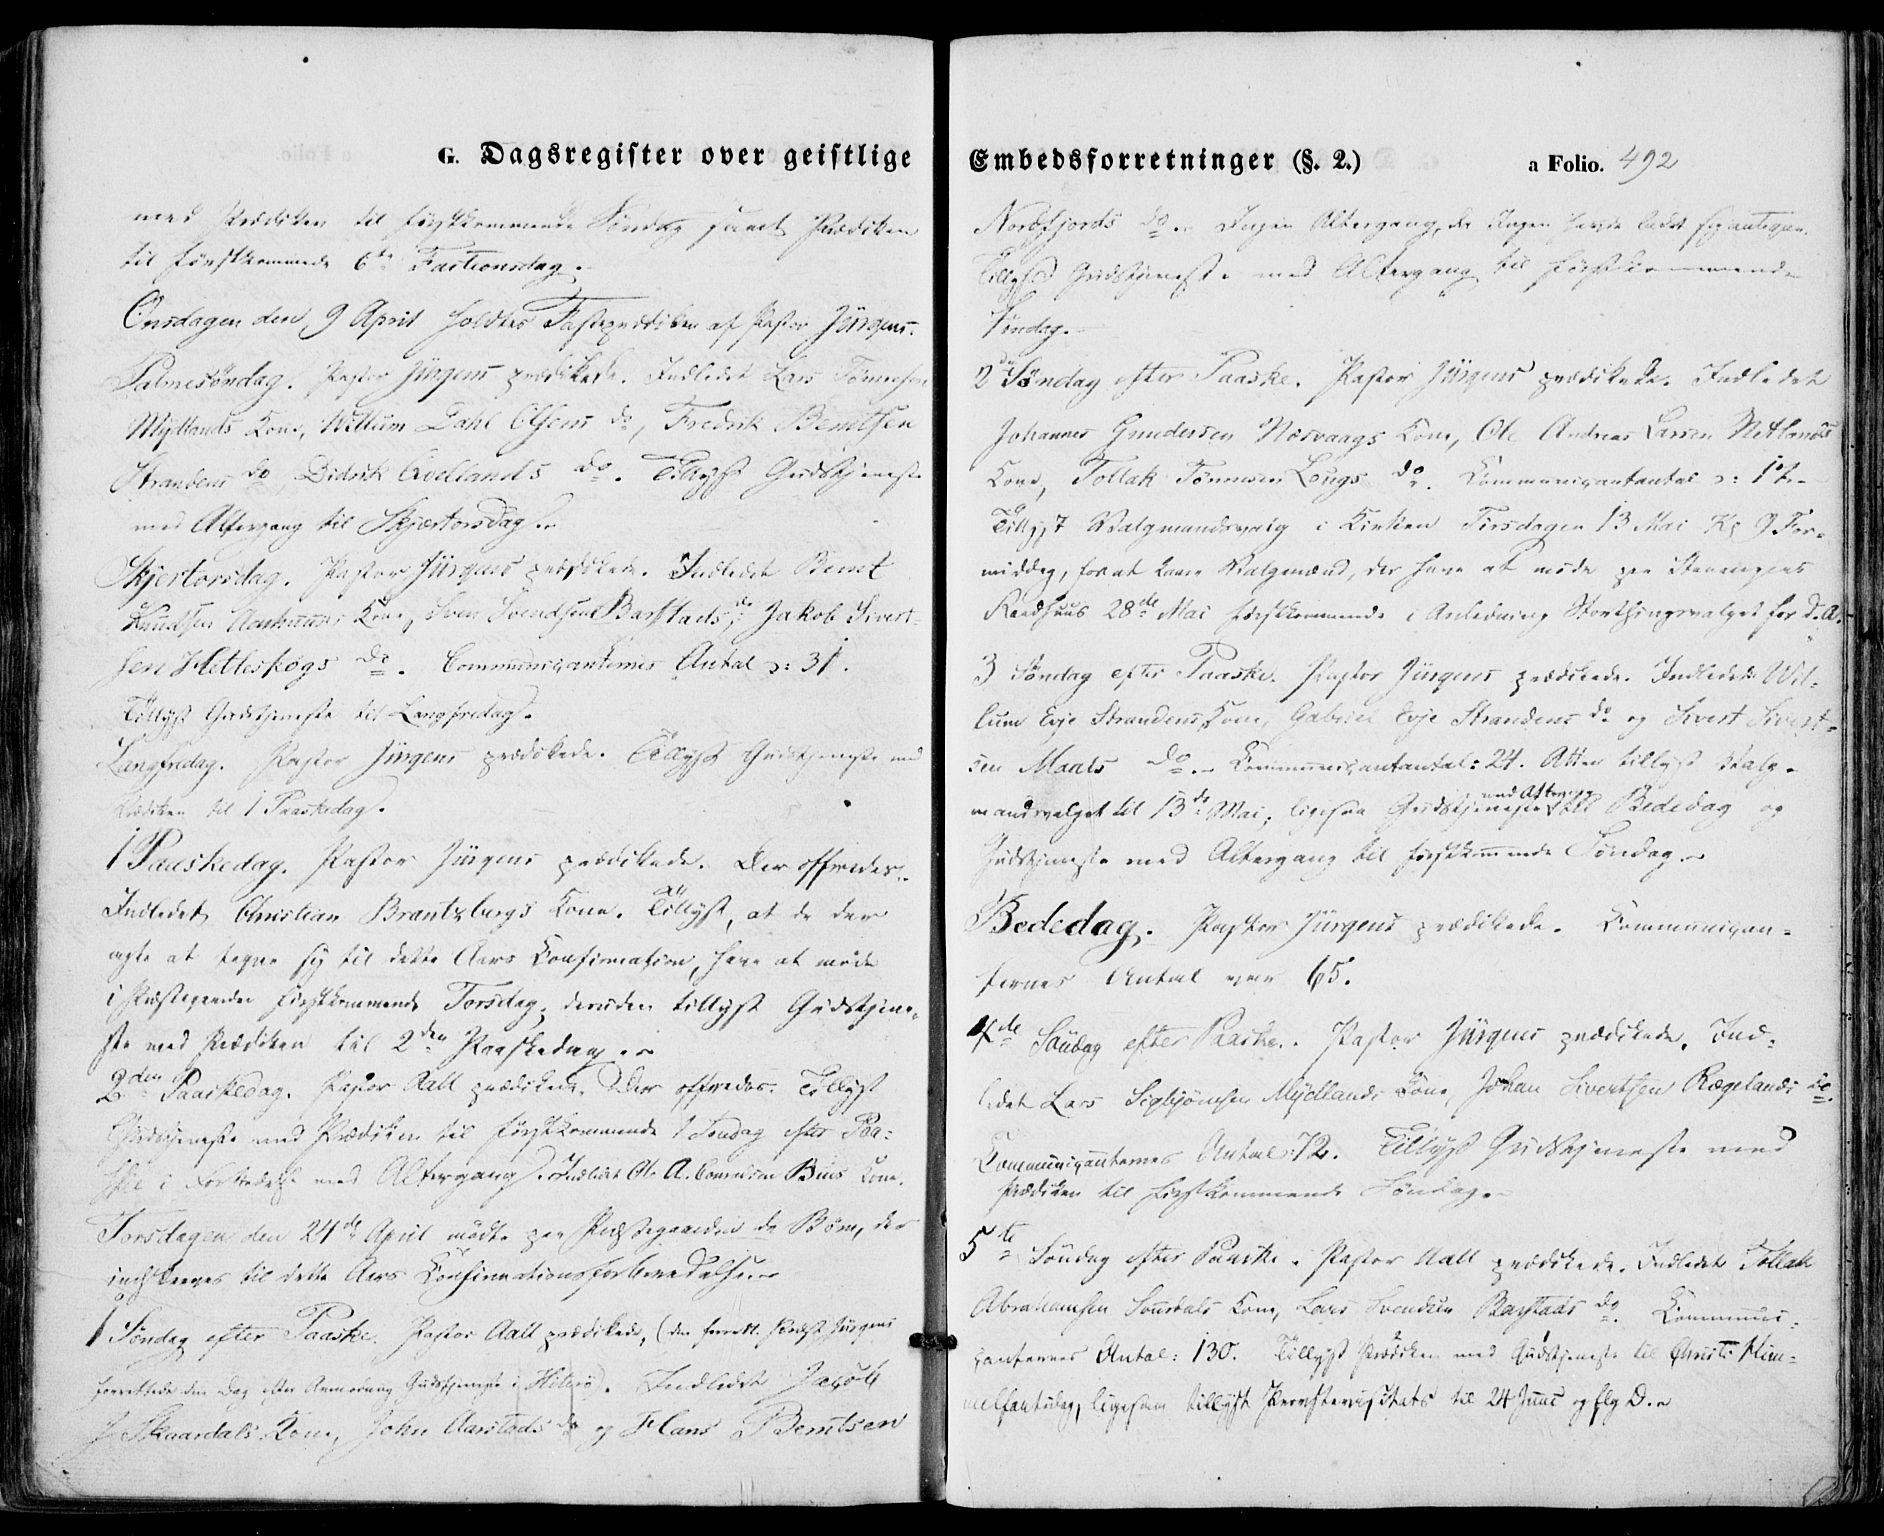 G. Dagsregister over geistlige
med Prædiken til førstkommende Søndag samt Prædiken
til førstkommende 6te Fastionsdag.
Onsdagen den 9 April holdtes Fasteprædiken af Pastor Jürgens.
Palmesøndag. Pastor Jürgens prædikede. Indledet Lars Tönnesen
Myllands Kone, Willum Dahl Olsens do, Fredrik Berntsen
Strandens do, Didrik Evellands do. Tillyst Gudstjeneste
med Altergang til Skjærtorsdag.
Skjertorsdag. Pastor Jürgens prædikede. Indledet Bernt
Knudsen Kone, Sven Svendsens Barstads do, Jakob Sivert-
sen Hetleskogs do. Communicanternes Antal ɔ: 31.
Tillyst Gudstjeneste til Langfredag.
Langfredag. Pastor Jürgens prædikede. Tillyst Gudstjeneste med
Prædiken til 1 Paaskedag.
1 Paaskedag. Pastor Jürgens prædikede. Der offredes.
Indledet Christian Brantzbergs Kone. Tillyst, at de der
agte at tegne sig til dette Aars Confirmation, have at møde
i Præstegaarden førstkommende Torsdag; desuden tillyst Gudstjene-
ste med Prædiken til 2den Paaskedag.
2den Paaskedag. Pastor Aall prædikede. Der offredes. Tillyst
Gudstjeneste med Prædiken til førstkommende 1 Søndag efter Paa-
ske i Forbindelse med Altergang. Indledet Ole A. Bues Kone.
Torsdagen den 24de April mødte paa Præstegaarden de Børn, der
indskreves til dette Aars Confirmationsforberedelse.
1 Søndag efter Paaske. Pastor Aall prædikede, (da Præst Jürgens
forrettede den Dag efter Anmodning Gudstjeneste i Hiterø). Indledet Jacob
J Skaardals Kone, John Aarstads do og Hans Berntsen
Embedsforretninger (§. 2.) a Folio. 492
Nordfjords do. Ingen Altergang, da Ingen havde ladet sig antegne.
Tillyst Gudstjeneste med Altergang til førstkommende
Søndag.
2den Søndag efter Paaske. Pastor Jürgens prædikede. Indledet
Johannes Gundersen Næsvaags Kone, Ole Andreas Larsen Netlands
Kone, Tollak Tönnesen Lougs do. Communicantantal ɔ: 12.
Tillyst Valgmandsvalg i Kirken Tirsdagen 13 Mai Kl 9 For-
middag, for at kaare Valgmænd, der have at møde paa Stavangers
Raadhuus 28de Mai førstkommende i Anledning Storthingsvalget for d. A.
3 Søndag efter Paaske. Pastor Jürgens prædikede. Indledet Wil-
lum Evje Strandens Kone, Gabriel Evje Strandens do og Sivert Sivert-
sen Maals do. Communicantantal: 24. Atter tillyst Valg-
mandsvalget til 13de Mai, ligesaa Gudstjeneste med Altergang til Bededag og
Gudstjeneste med Altergang til førstkommende Søndag.
Bededag. Pastor Jürgens prædikede. Communican-
ternes Antal var 65.
4de Søndag efter Paaske. Pastor Jürgens prædikede. Ind-
ledet Lars Sigbjörnsen Mydlands Kone, Johan Sivertsen Rægelands do.
Communicanternes Antal: 72. Tillyst Gudstjeneste med
Prædiken til førstkommende Søndag.
5te Søndag efter Paaske. Pastor Aall prædikede. Indledet Tollak
Abrahamsen Kone, Lars Svendsen Barstads do. Communi-
canternes Antal: 130. Tillyst Prædiken med Gudstjeneste til Christi Him-
melfartsdag, ligesaa tillyst til 24 Juni og flg D.